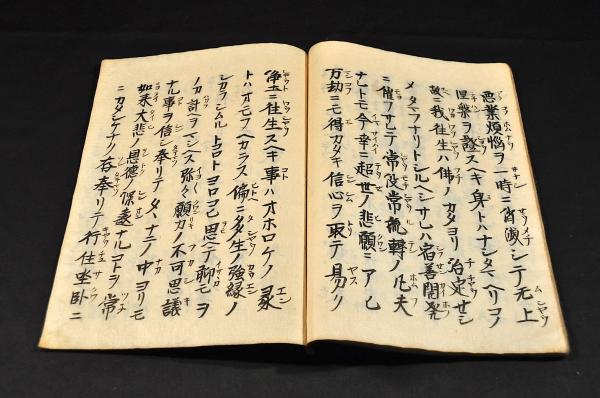 悪業煩悩ヲ一時ニ消滅シテ无上
涅槃ヲ證スヘキ身トハナシタマヘリコノ
故ニ我往生ハ佛ノカタヨリ治定セシ
メタマフナリトシルヘシサレハ宿善開発
ニ催フサレテ常没常流轉ノ凡夫
ナレトモ今幸ニ超世ノ悲願ニアヒ
万劫ニモ得カタキ信心ヲ取テ易ク
浄土ニ往生スヘキ事ハオホロケノ縁
トハオモフヘカラス偏ニ多生ノ強縁ノ
シカラシムルトコロトヨロコヒ思ヘテ聊モヲ
ノカ計ヲマシヘス弥々願力ノ不可思議
ナル事ヲ信シ奉リテタヽナニノ中ヨリモ
如来大悲ノ恩徳ノ深遠ナルコトヲ常
ニカタシケナク存奉リテ行住坐臥ニ